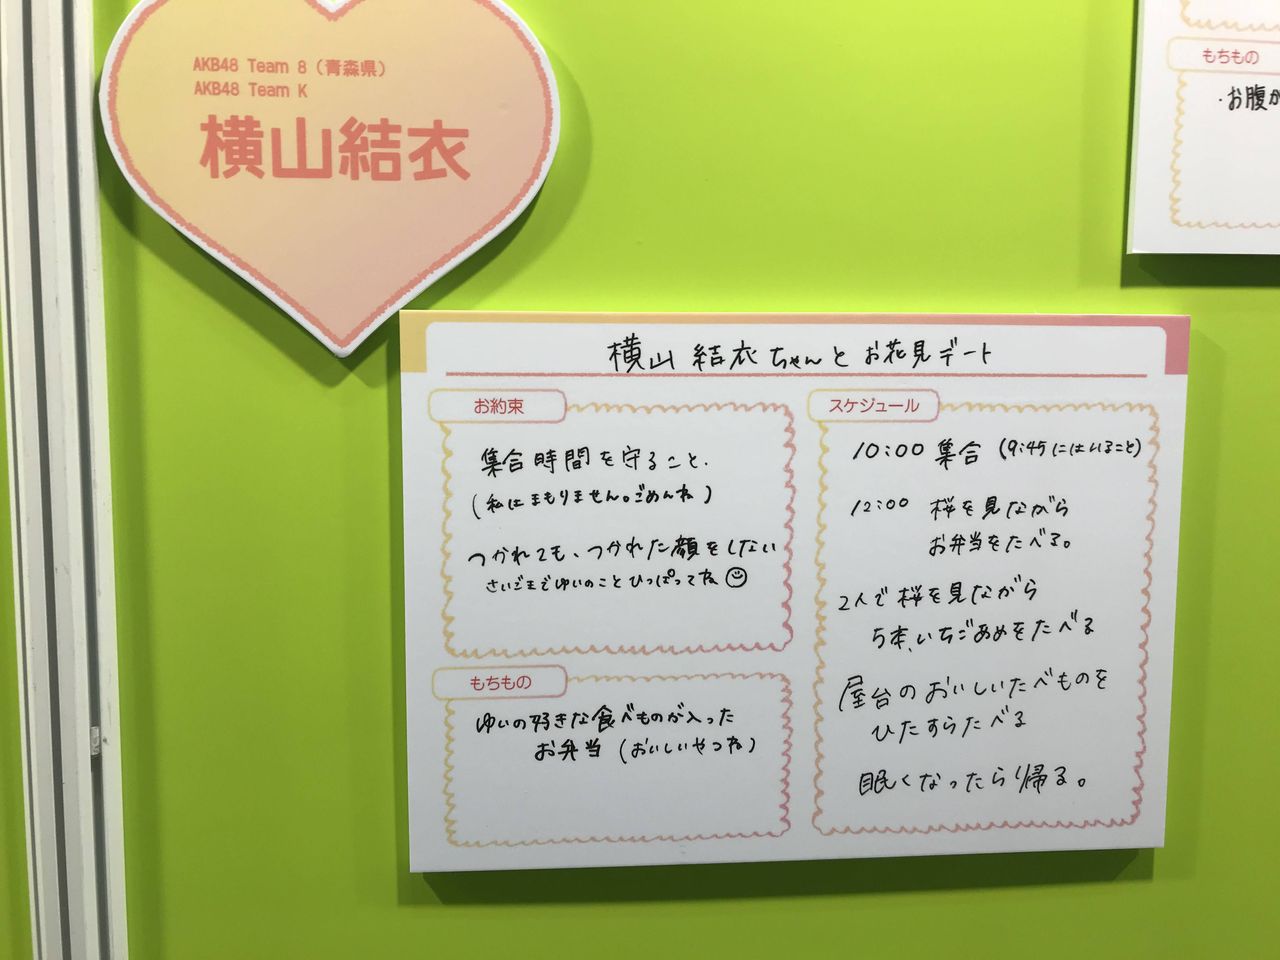 AKB48 Team 8（青森県）
AKB48 Team K
横山結衣
もちもの
・お腹が
横山 結衣ちゃんとお花見デート
お約束
集合時間を守ること.
(私はまもりません。ごめんね)
つかれても、つかれた顔をしない
さいごまでゆいのことひっぱってね☺
もちもの
ゆいの好きな食べものが入った
お弁当 (おいしいやつね)
スケジュール
10:00 集合 (9:45にはいること)
12:00 桜を見ながら
お弁当をたべる。
2人で桜を見ながら
5本、いちごあめをたべる
屋台のおいしいたべものを
ひたすらたべる
眠くなったら帰る。